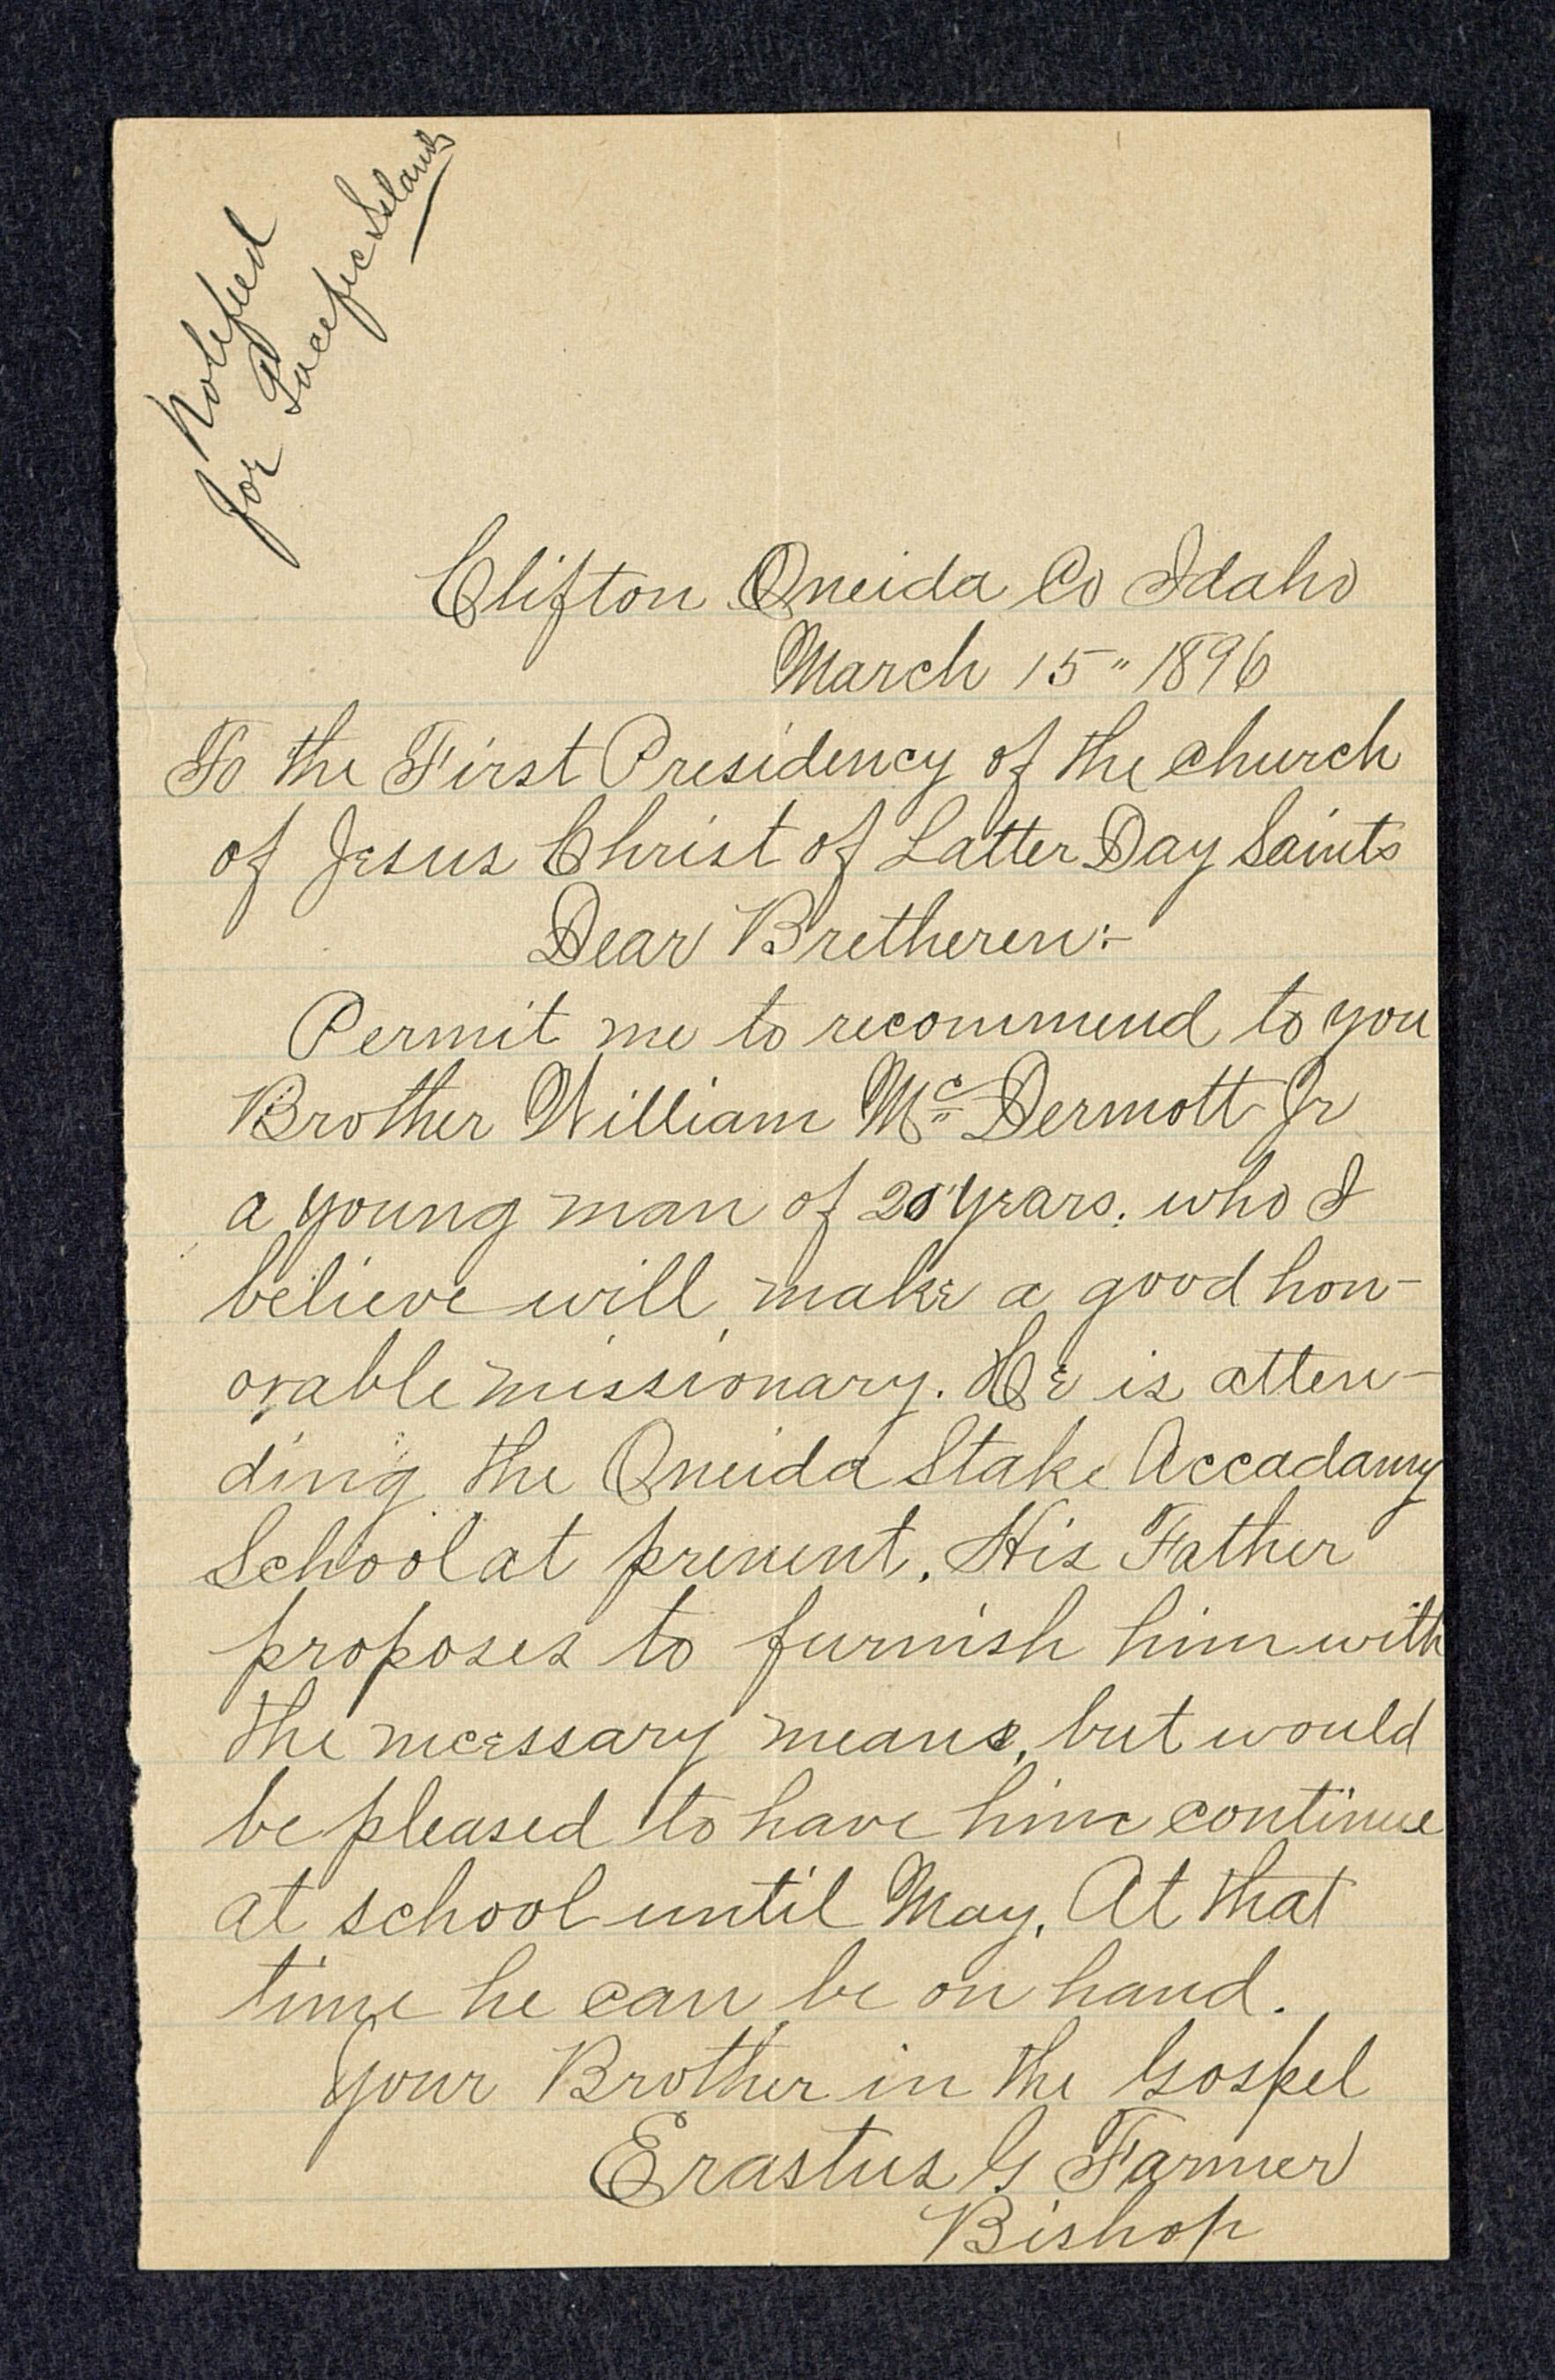 Notified
for Pacific Islands
Clifton Oneida Co Idaho
March 15" 1896
To the First Presidency of the church
of Jesus Christ of Latter Day Saints
Dear Bretheren:-
Permit me to recommend to you
Brother William Mc Dermott Jr
a young man of 20 years. who I
believe will make a good hon-
orable missionary. He is atten-
ding the Oneida Stake Accadamy
School at present. His Father
proposes to furnish him with
the necessary means, but would
be pleased to have him continue
at school until May. At that
time he can be on hand.
Your Brother in the Gospel
Erastus G Farmer
Bishop